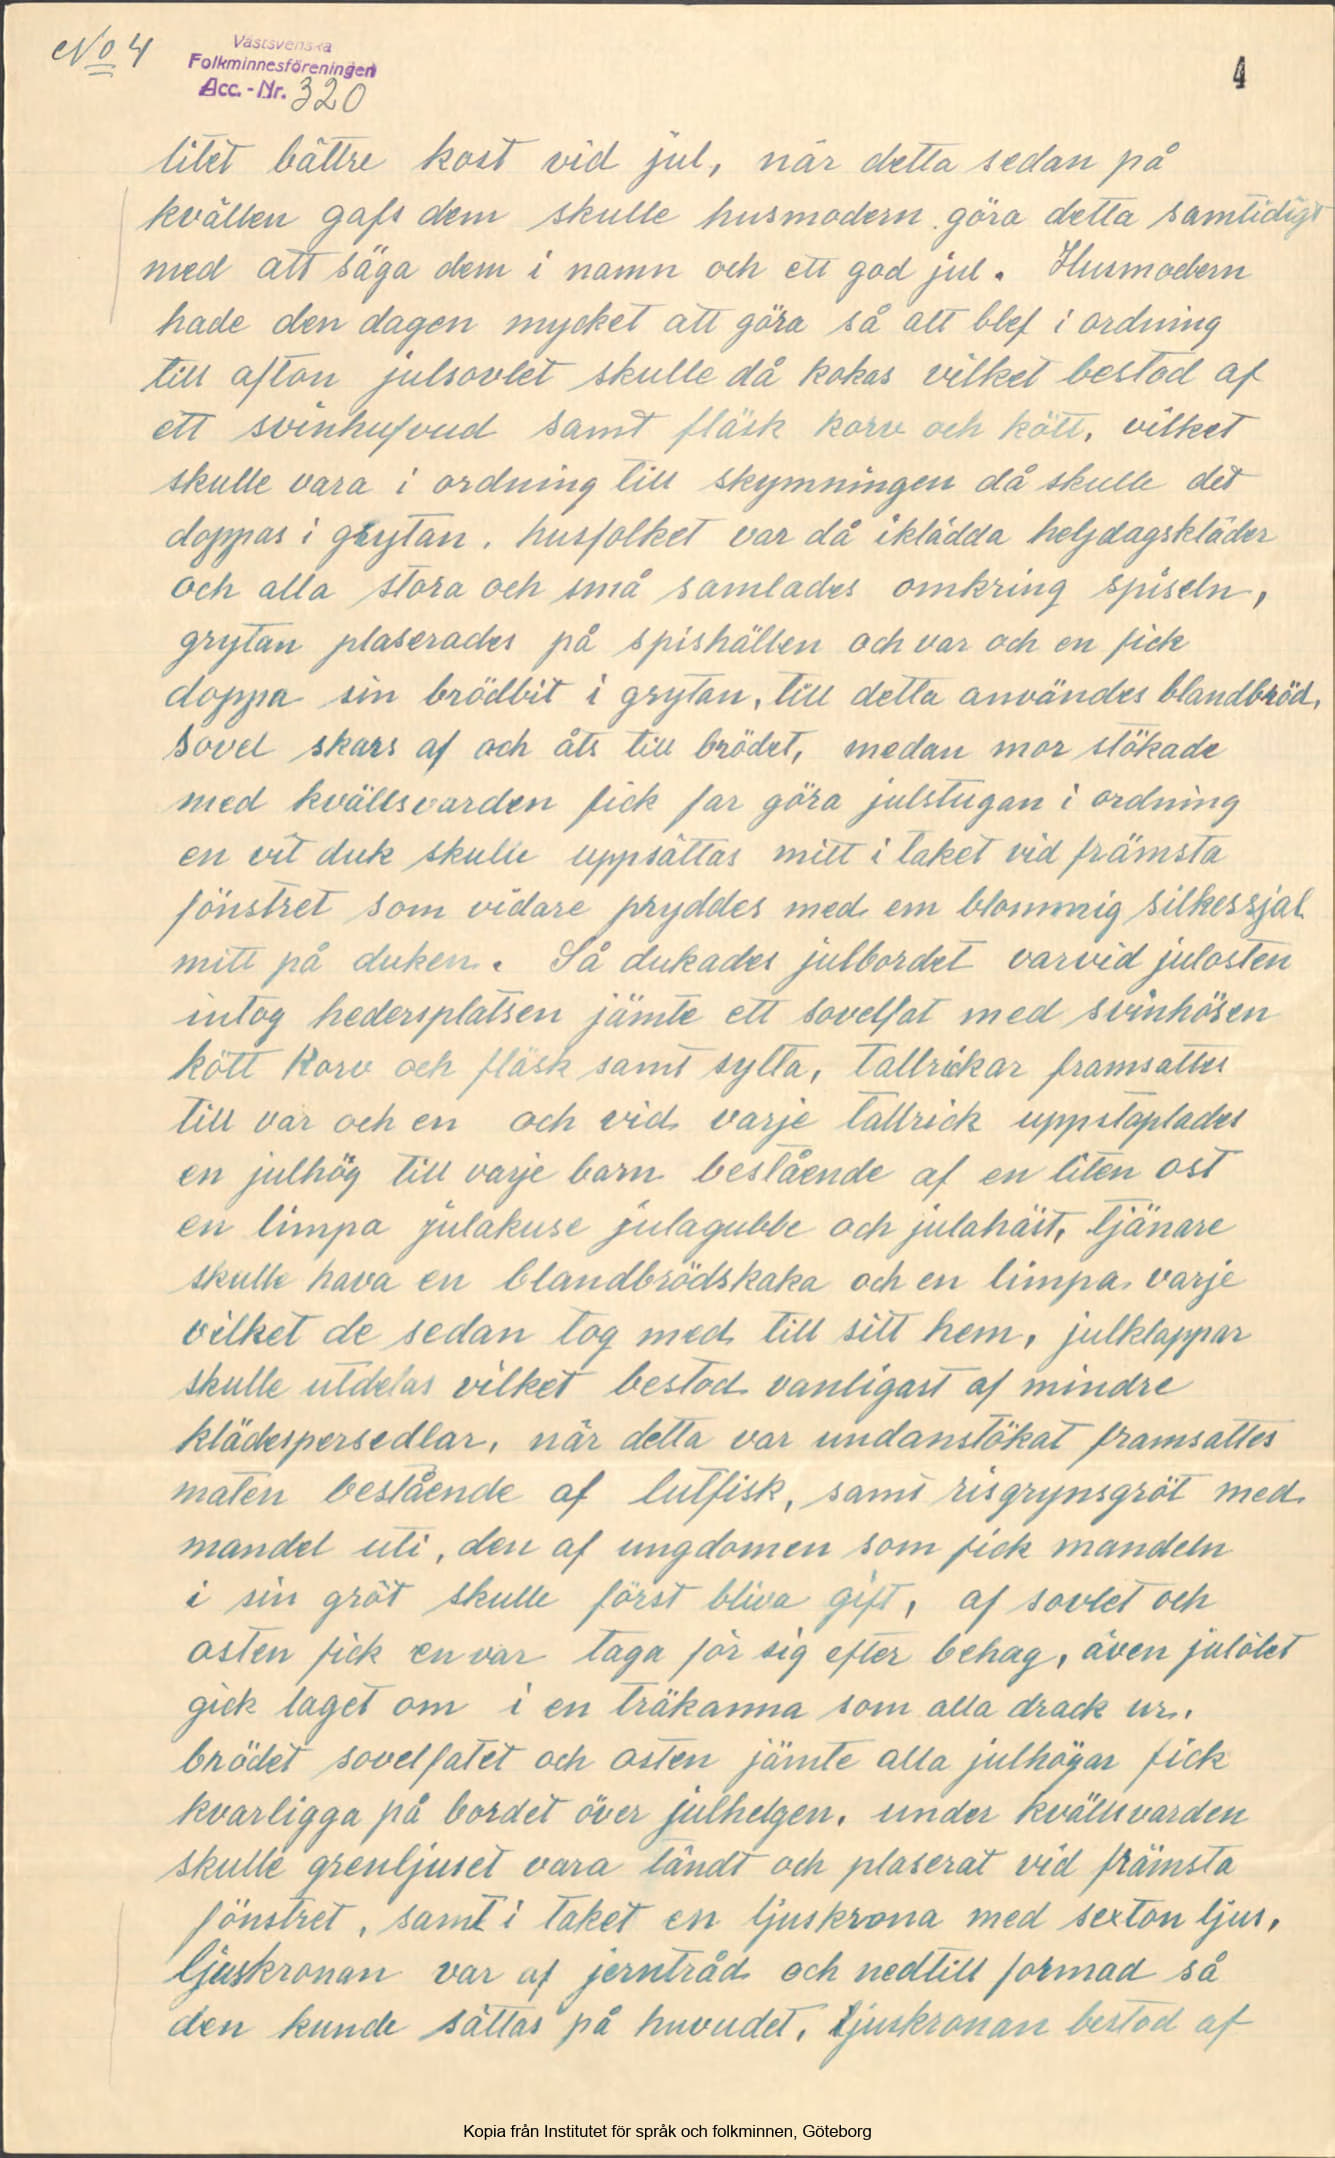 No 4
Västsvenska
Folkminnesföreningen
Acc. - Nr. 320
4
litet bättre kost vid jul, när detta sedan på
kvällen gafs dem skulle husmodern göra detta samtidigt
med att säga dem i namn och ett god jul. Husmodern
hade den dagen mycket att göra så att blef i ordning
till afton julsovlet skulle då kokas vilket bestod af
ett svinhufvud samt fläsk korv och kött, vilket
skulle vara i ordning till skymningen då skulle det
doppas i grytan. husfolket var då iklädda heljdagskläder
och alla stora och små samlades omkring spiseln,
grytan plaserades på spishällen och var och en fick
doppa sin brödbit i grytan, till detta användes blandbröd,
Sovel skars af och åts till brödet, medan mor stökade
med kvällsvarden fick far göra julstugan i ordning
en vit duk skulle uppsättas mitt i taket vid främsta
fönstret som vidare pryddes med em blommig silkessjal
mitt på duken. Så dukades julbordet varvid julosten
intog hedersplatsen jämte ett sovelfat med svinhösen
kött korv och fläsk samt sylta, tallrickar framsattes
till var och en och vid varje tallrick uppstaplades
en julhög till varje barn bestående af en liten ost
en limpa julakuse julagubbe och julahäst, tjänare
skulle hava en blandbrödskaka och en limpa varje
vilket de sedan tog med till sitt hem, julklappar
skulle utdelas vilket bestod vanligast af mindre
klädespersedlar, när detta var undanstökat framsattes
maten bestående af lutfisk, samt risgrynsgröt med
mandel uti, den af ungdomen som fick mandeln
i sin gröt skulle först bliva gift, af sovlet och
osten fick en var taga för sig efter behag, även julölet
gick laget om i en träkanna som alla drack ur.
brödet sovelfatet och osten jämte alla julhögar fick
kvarligga på bordet över julhelgen. under kvällsvarden
skulle grenljuset vara tändt och plaserat vid främsta
fönstret, samt i taket en ljuskrona med sexton ljus,
ljuskronan var af jerntråd och nedtill formad så
den kunde sättas på huvudet, ljuskronan bestod af
Kopia från Institutet för språk och folkminnen, Göteborg